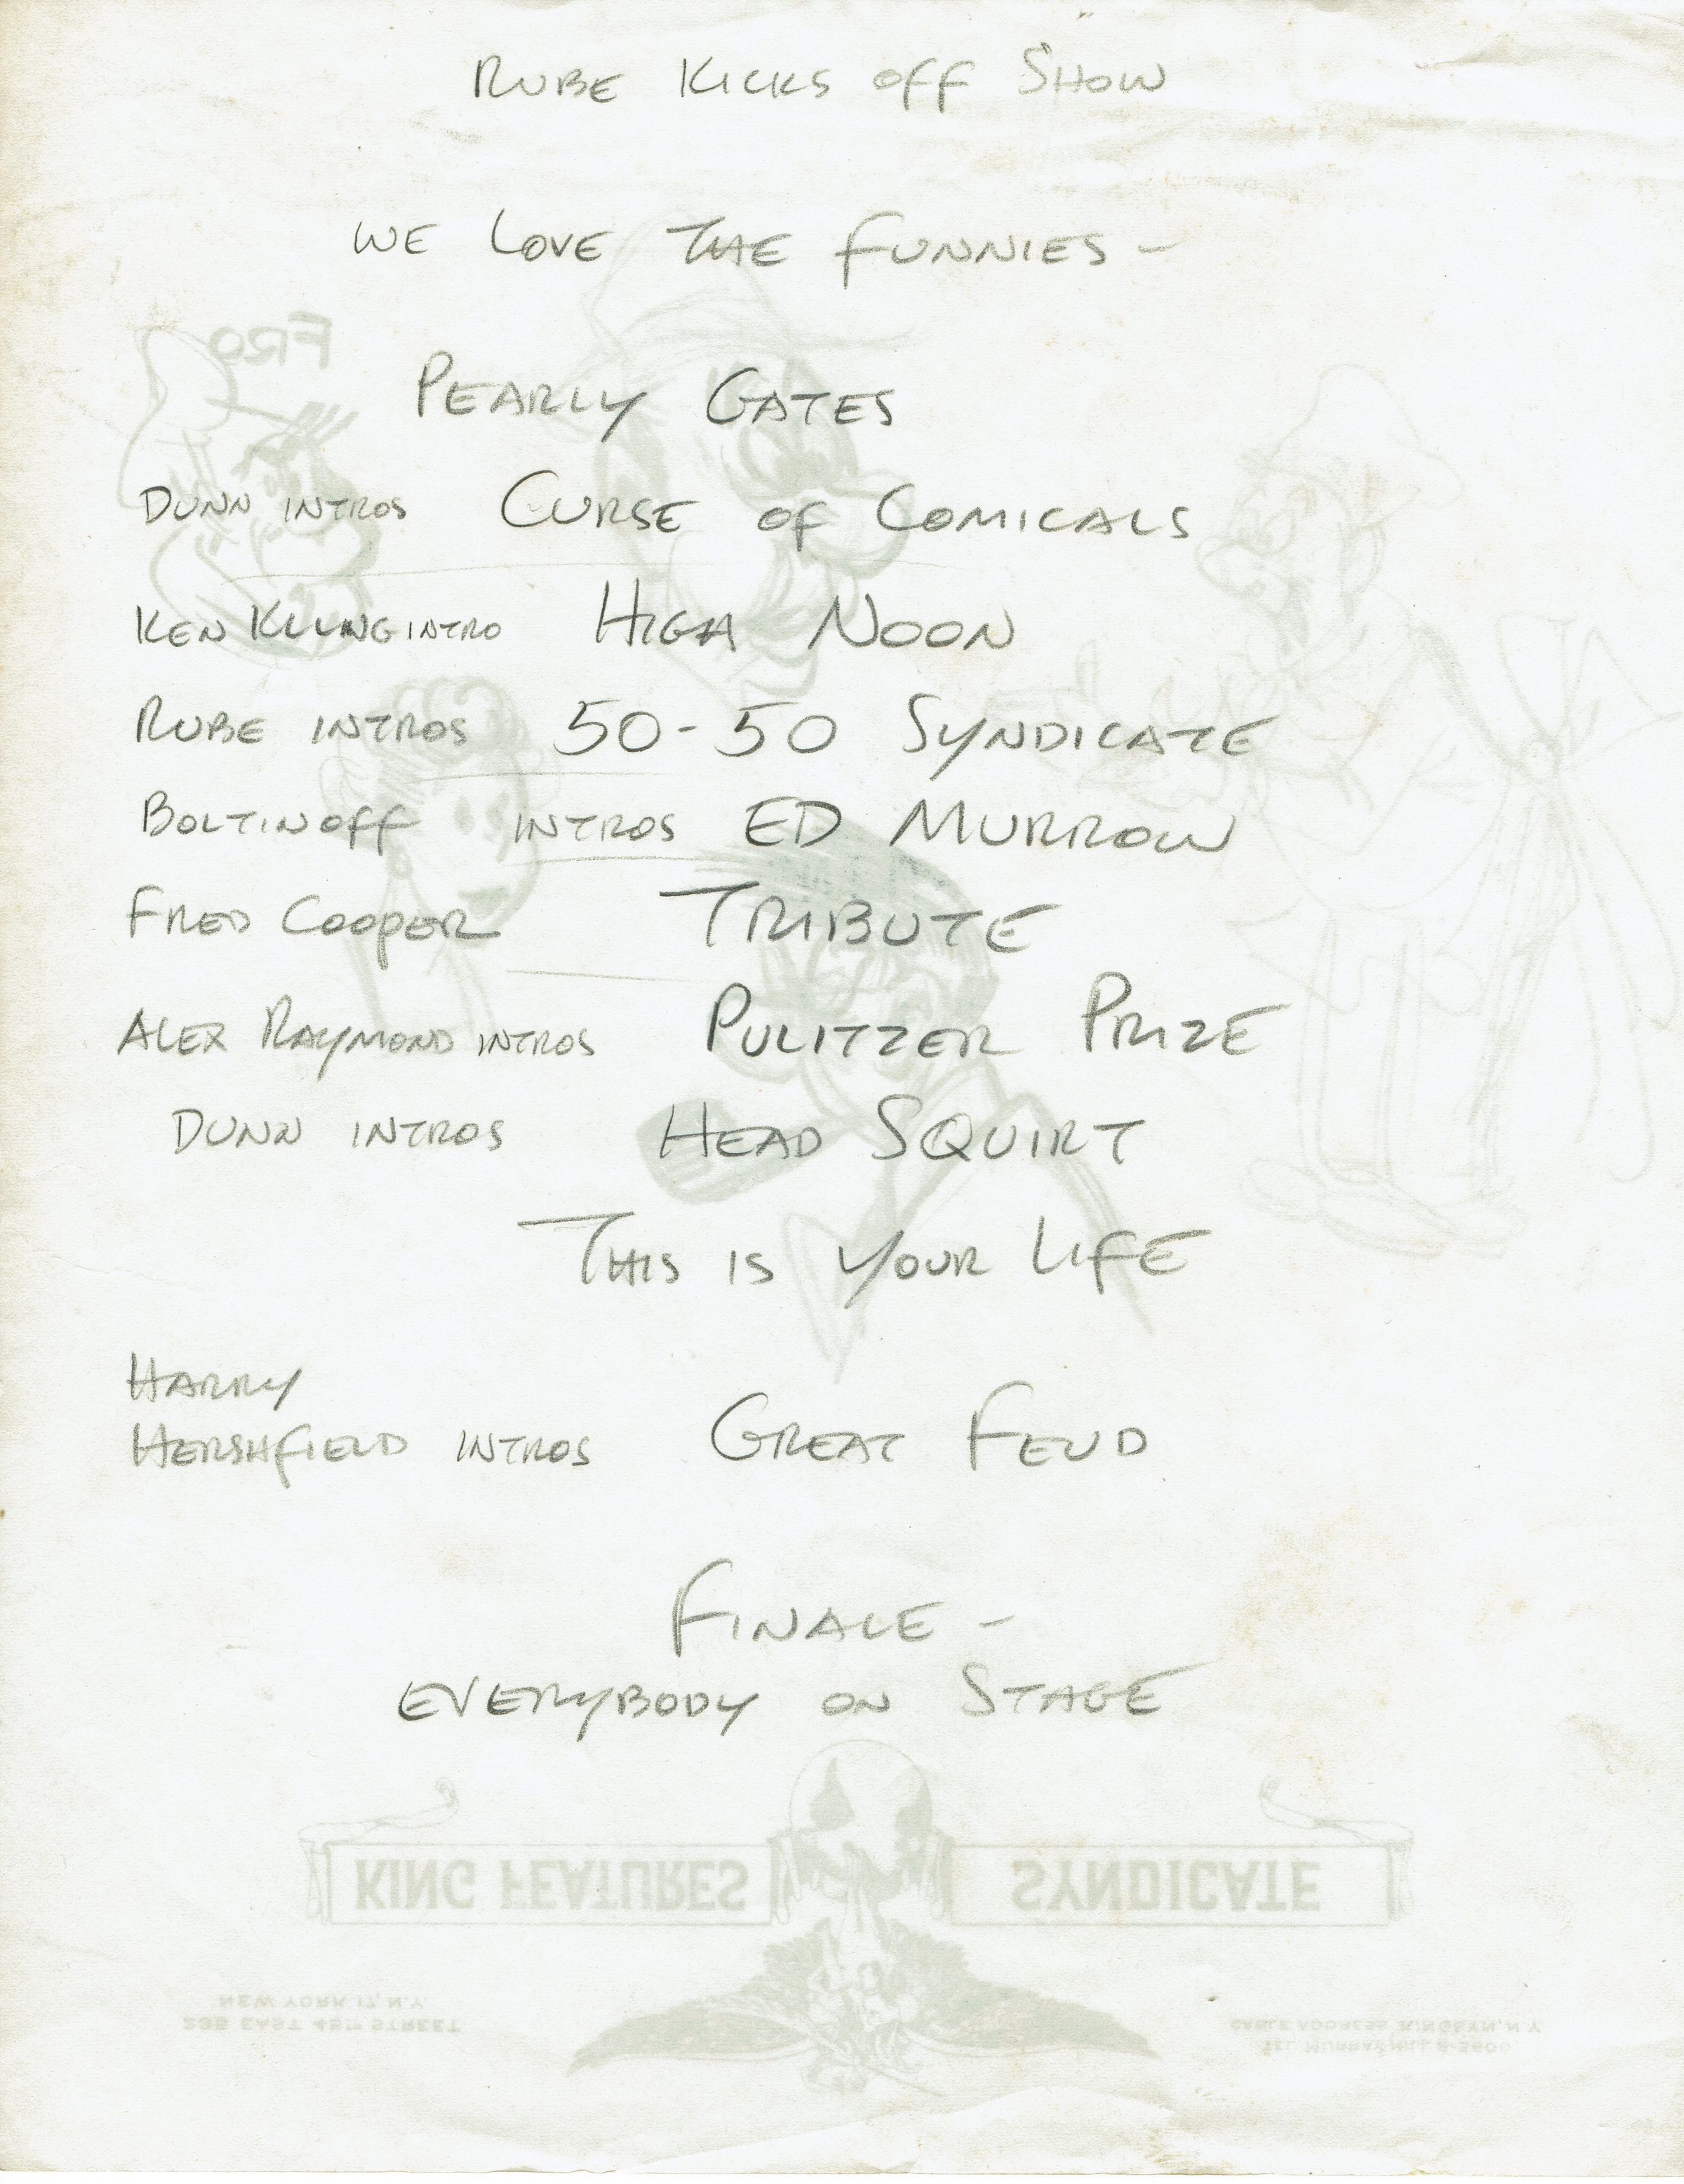 RUBE KICKS OFF SHOW
WE LOVE THE FUNNIES -
FRO
PEARLY GATES
DUNN INTROS CURSE OF COMICALS
KEN KLING INTRO HIGH NOON
RUBE INTROS 50-50 SYNDICATE
BOLTINOFF INTROS ED MURROW
FRED COOPER TRIBUTE
ALEX RAYMOND INTROS PULITZER PRIZE
DUNN INTROS HEAD SQUIRT
THIS IS YOUR LIFE
HARRY
HERSHFIELD INTROS GREAT FEUD
FINALE -
EVERYBODY ON STAGE
KING FEATURES SYNDICATE
NEW YORK 17, N.Y.
235 EAST 45TH STREET
CABLE ADDRESS, KINGSYN, N.Y.
TEL. MURRAY HILL 8-5600